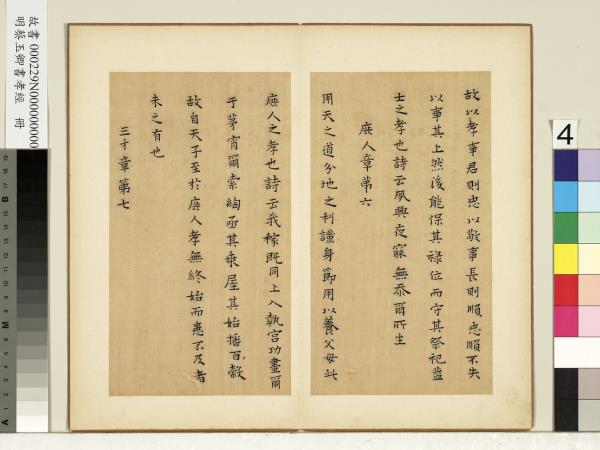 故以孝事君則忠以敬事長則順忠順不失
以事其上然後能保其祿位而守其祭祀蓋
士之孝也詩云夙興夜寐無忝爾所生
庶人章第六
用天之道分地之利謹身節用以養父母此
庶人之孝也詩云我稼既同上入執宮功晝爾
于茅宵爾索綯亟其乘屋其始播百穀
故自天子至於庶人孝無終始而患不及者
未之有也
三才章第七
故書 000229N000000000
明蔡玉卿書孝經 冊
4
B
M
A